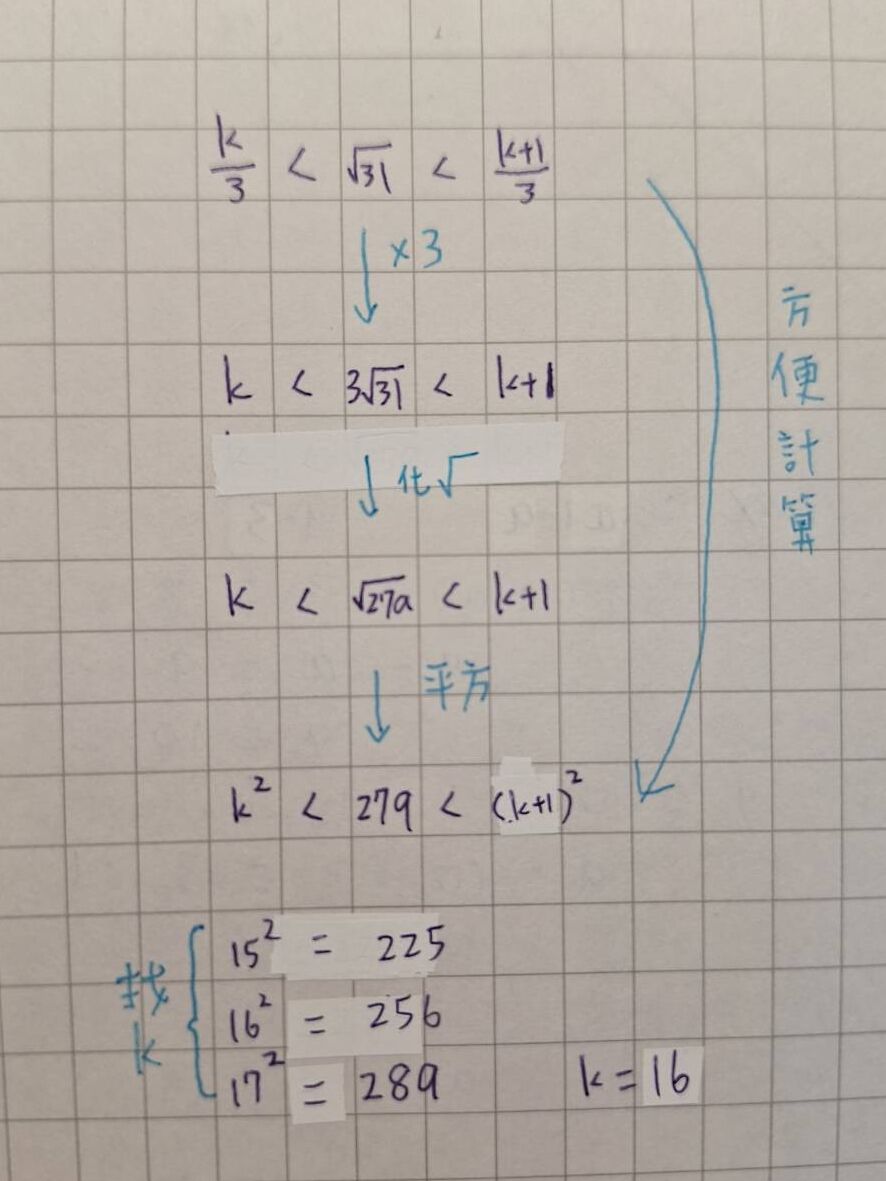 k/3 < √31 < (k+1)/3
↓ ×3
k < 3√31 < k+1
↓ 化√
k < √279 < k+1
↓ 平方
k² < 279 < (k+1)²
方便計算
找k
15² = 225
16² = 256
17² = 289
k = 16